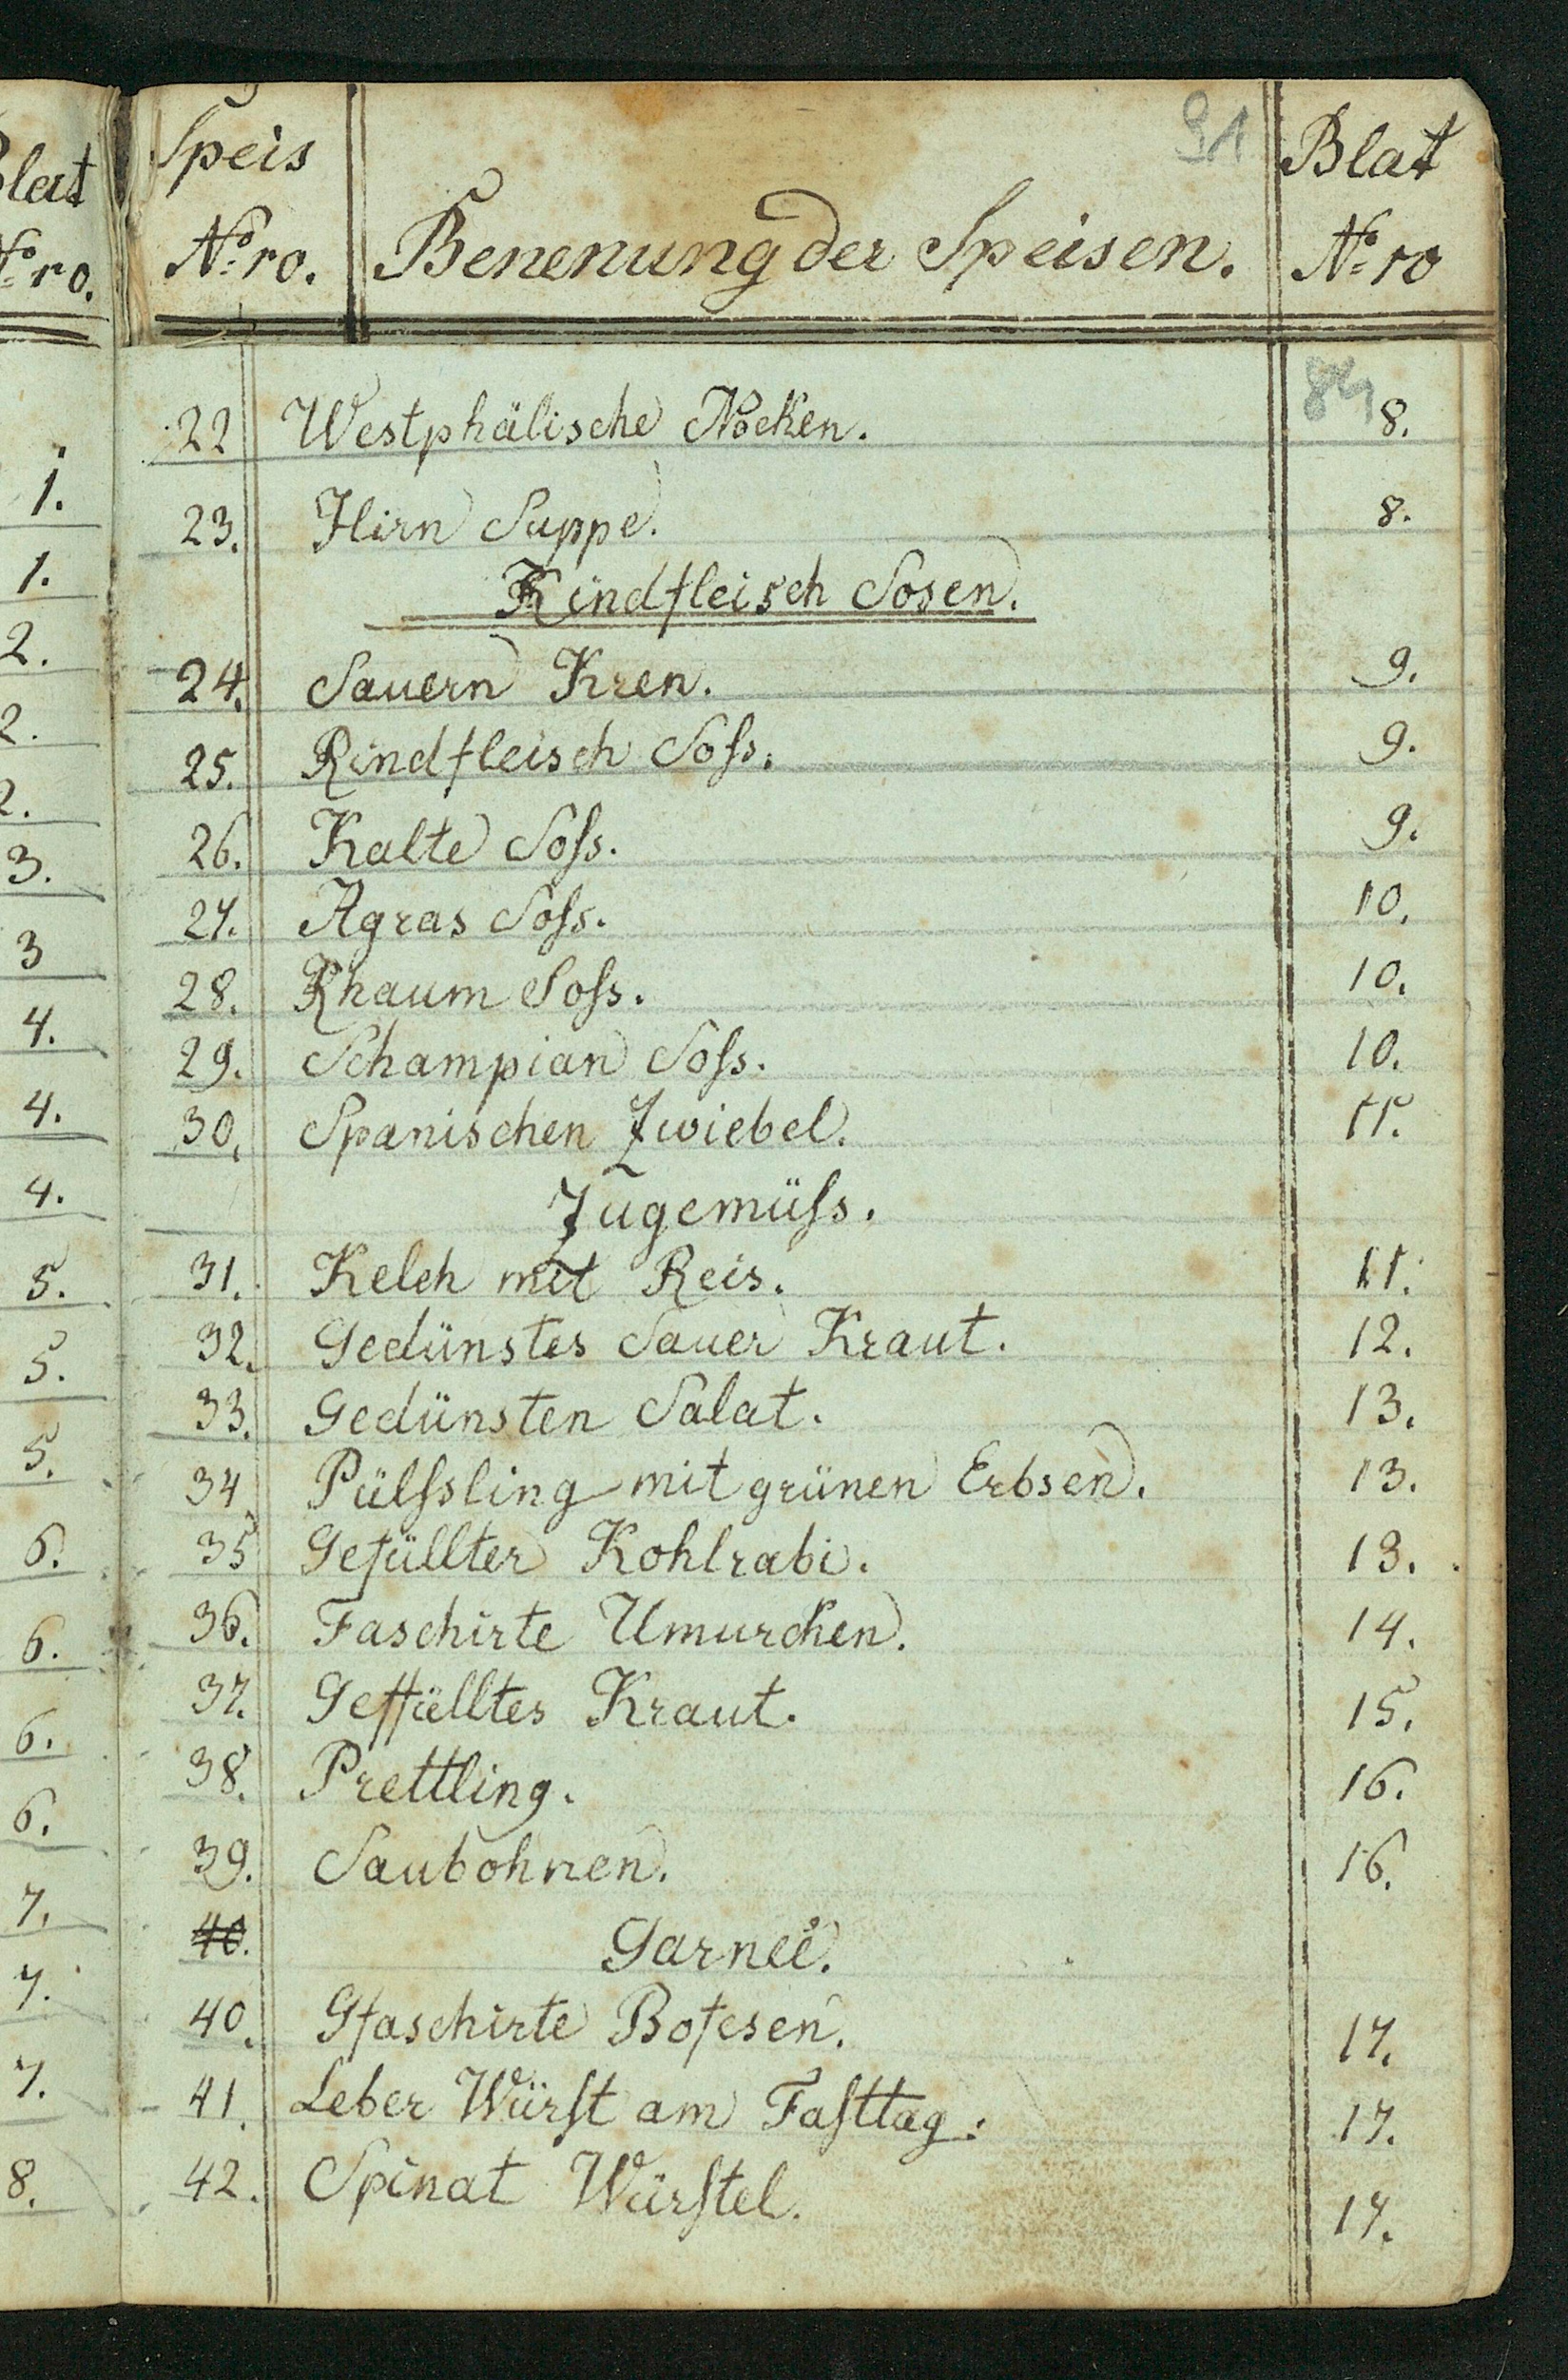 91
Speis Blat
N:ro. Benenung der Speisen. N:ro
84
22 Westphälische Nocken. 8.
23. Hirn Suppe. 8.
Rindfleisch Sosen.
24. Sauern Kren. 9.
25. Rindfleisch Soſs. 9.
26. Kalte Soſs. 9.
27. Agras Soſs. 10.
28. Rhaum Soſs. 10.
29. Schampian Soſs. 10.
30. Spanischen Zwiebel. 11.
Zugemüſs.
31. Kelch mit Reis. 11.
32. Gedünstes Sauer Kraut. 12.
33. Gedünsten Salat. 13.
34 Pülſsling mit grünen Erbsen. 13.
35 Gefüllter Kohlrabi. 13.
36. Faschirte Umurcken. 14.
37. Geffülltes Kraut. 15.
38. Prettling. 16.
39. Saubohnen. 16.
40. Garnei.
40. Gfaschirte Bofesen. 17.
41. Leber Würſt am Faſttag. 17.
42. Spinat Würſtel. 17.
Blat
N:ro.
1.
1.
2.
2.
2.
3.
3
4.
4.
4.
5.
5.
5.
6.
6.
6.
6.
7.
7.
7.
8.